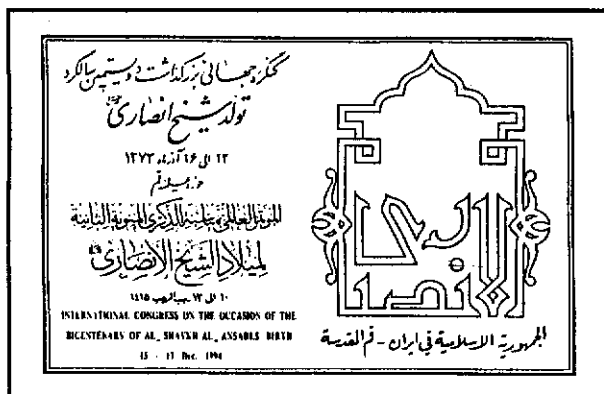 کنگره جهانی بزرگداشت دویستمین سالگرد
تولد شیخ انصاری
۱۳۷۳ آذرماه ۱۶ الی
حوزه علمیه قم
المؤتمر العالمي بمناسبة الذكرى المئوية الثانية
لميلاد الشيخ الأنصاري
١٠ الى ١٣ رجب ١٤١٥
INTERNATIONAL CONGRESS ON THE OCCASION OF THE
BICENTENARY OF AL_ SHAYKH AL_ ANSARIS BIRTH
15 - 17 Dec. 1994
الجمهورية الاسلامية في ايران - قم المقدسة